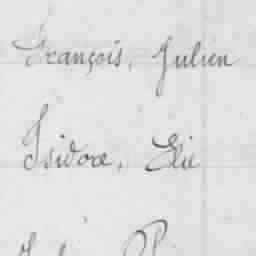 François, Julien
Isidore, Elie